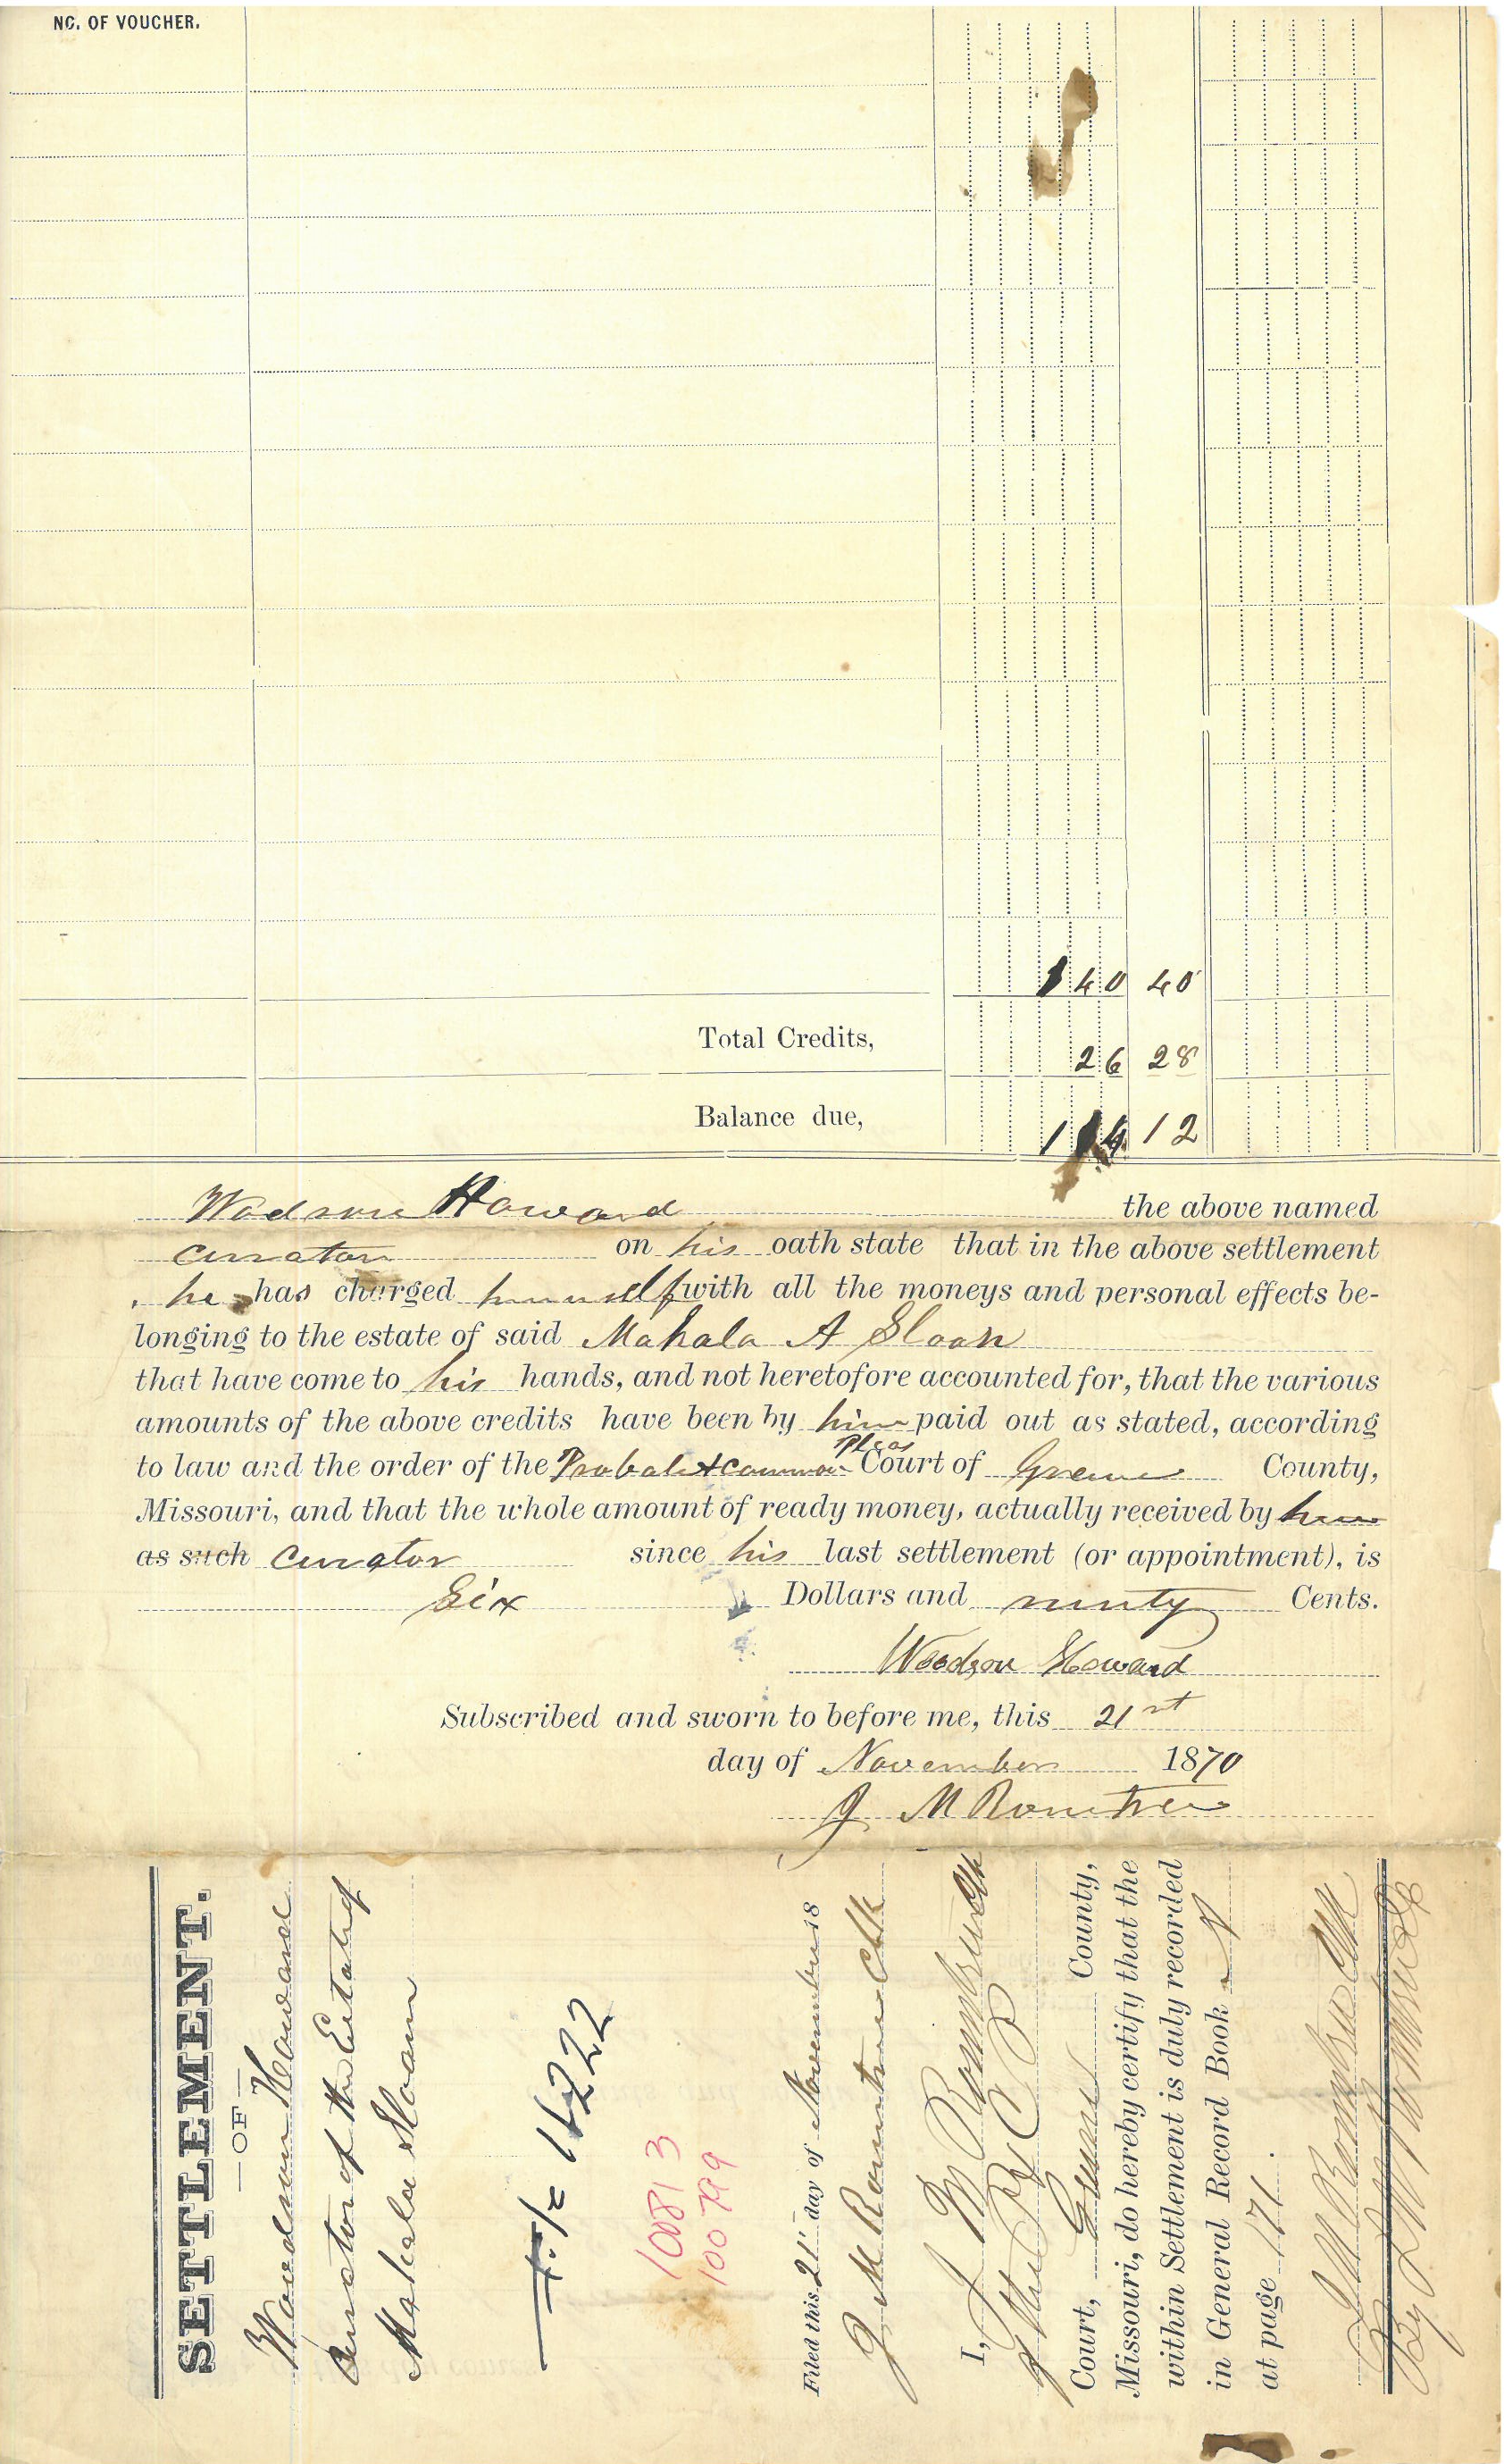 NO. OF VOUCHER.
140 40
Total Credits, 26 28
Balance due, 114 12
Wodson Howard the above named
curator on his oath state that in the above settlement
he has charged himself with all the moneys and personal effects be-
longing to the estate of said Mahala A Sloan
that have come to his hands, and not heretofore accounted for, that the various
amounts of the above credits have been by him paid out as stated, according
to law and the order of the Probate & Common Pleas Court of Greene County,
Missouri, and that the whole amount of ready money, actually received by him
as such curator since his last settlement (or appointment), is
Six Dollars and ninty Cents.
Woodson Howard
Subscribed and sworn to before me, this 21st
day of November 1870
J M Rountree
SETTLEMENT.
—OF—
Woodson Howard
Curator of the Estate of
Mahala Sloan
1222
10081 3
100 799
Filed this 21st day of November 18
J M Rountree Clk
I, J M Rountree Clk
of the P & C P
Court, Greene County,
Missouri, do hereby certify that the
within Settlement is duly recorded
in General Record Book A
at page 171.
J M Rountree Clk
By